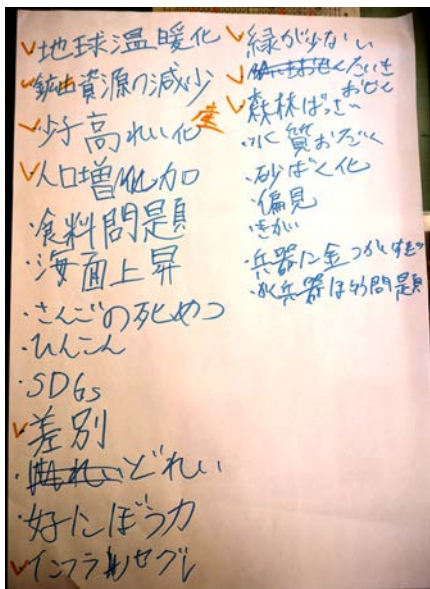 地球温暖化
鉱山資源の減少
少子高れい化
人口増加
・食料問題
・海面上昇
・さんごの死めつ
・ひんこん
・SDGs
差別
・どれい
・好にぼう力
インフラ
緑が少ない
たいきおせん
森林ばっさい
・水質おだく
・砂ばく化
・偏見
・きがい
・兵器に金つかいすぎ
・かく兵器ほ有問題